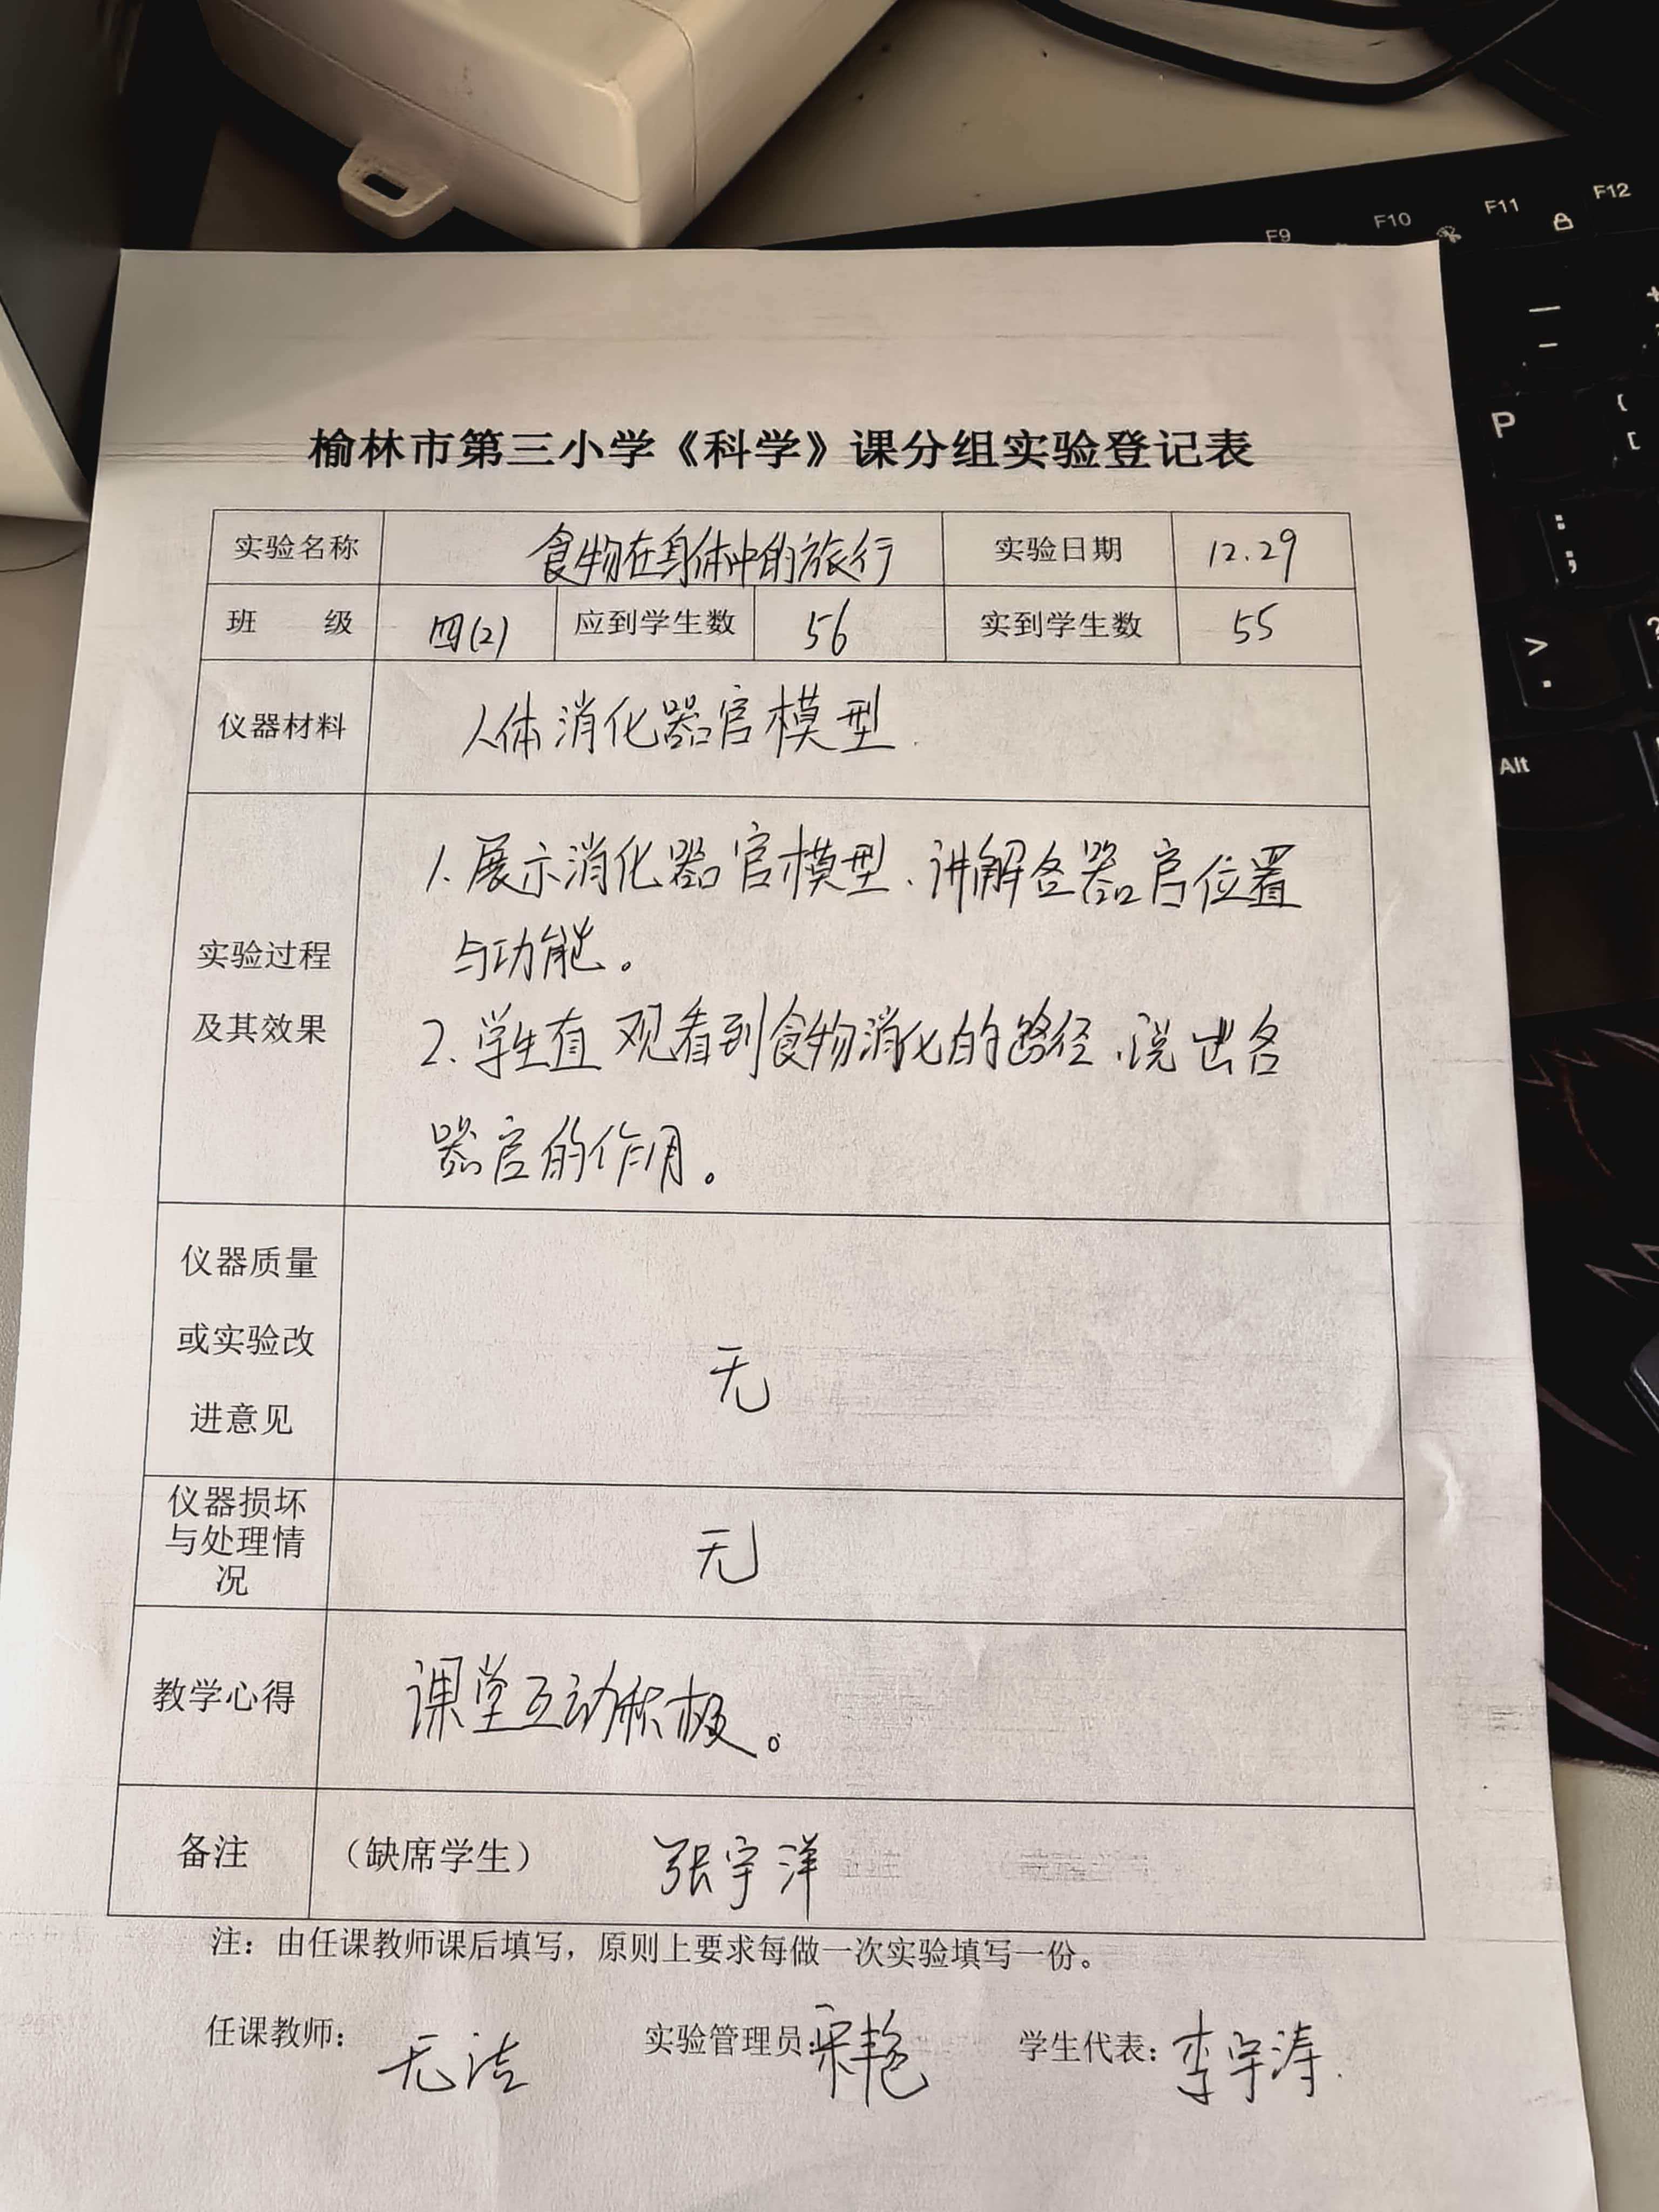 F9 F10 F11 F12
P
Alt
榆林市第三小学《科学》课分组实验登记表
实验名称 食物在身体中的旅行 实验日期 12.29
班 级 四(2) 应到学生数 56 实到学生数 55
仪器材料 人体消化器官模型
1.展示消化器官模型、讲解各器官位置
与功能。
2.学生直观看到食物消化的路径,说出各
器官的作用。
实验过程
及其效果
仪器质量
或实验改
进意见
无
仪器损坏
与处理情
况
无
教学心得 课堂互动积极。
备注 (缺席学生) 张宇洋
注:由任课教师课后填写,原则上要求每做一次实验填写一份。
任课教师: 无洁 实验管理员: 宋艳 学生代表: 李宇涛